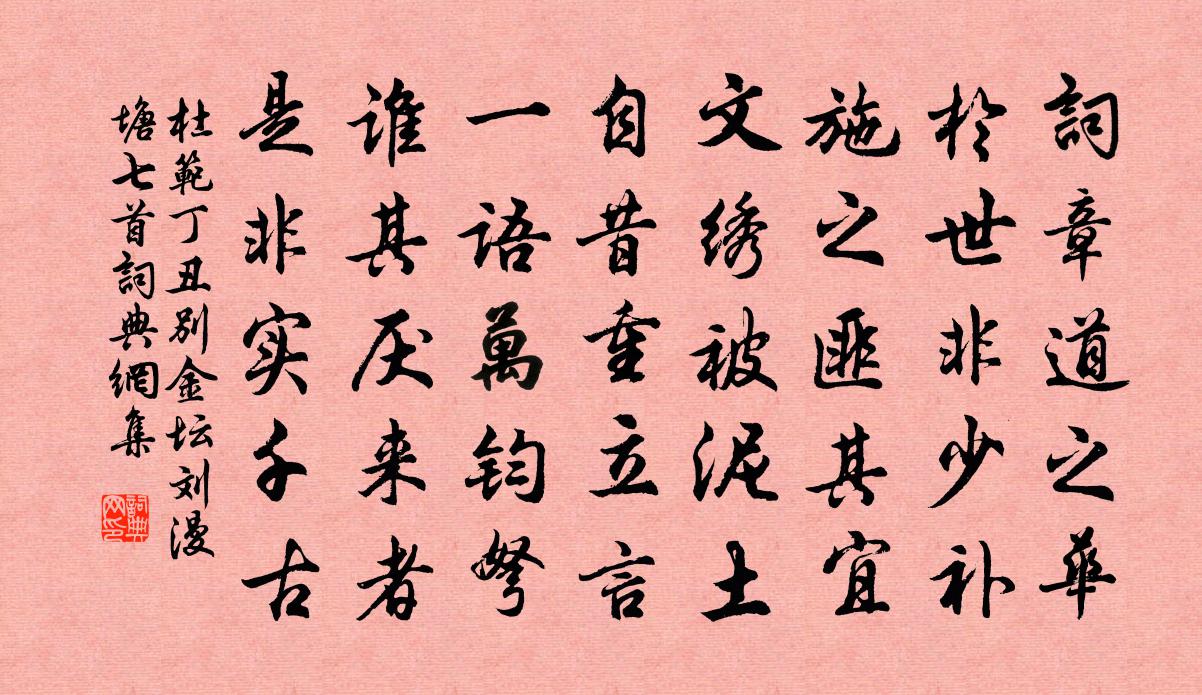 詞章道之華
於世非少补
施之匪其宜
文绣被泥土
自昔重立言
一語萬钧弩
谁其厌来者
是非实千古
杜範丁丑别金坛刘漫
塘七首詞典網集
詞典
网印